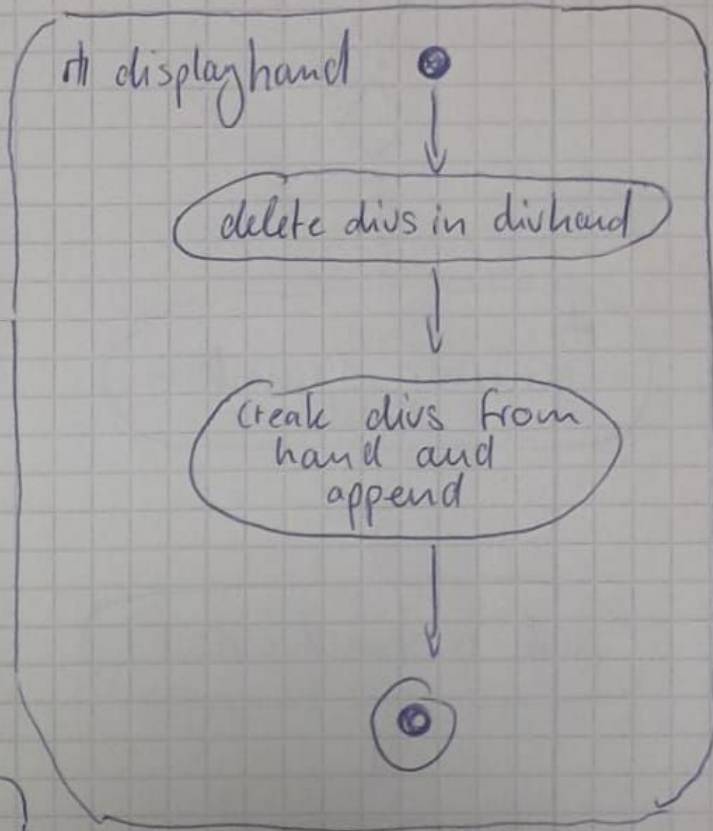 displayhand
delete divs in divhand
create divs from
hand and
append